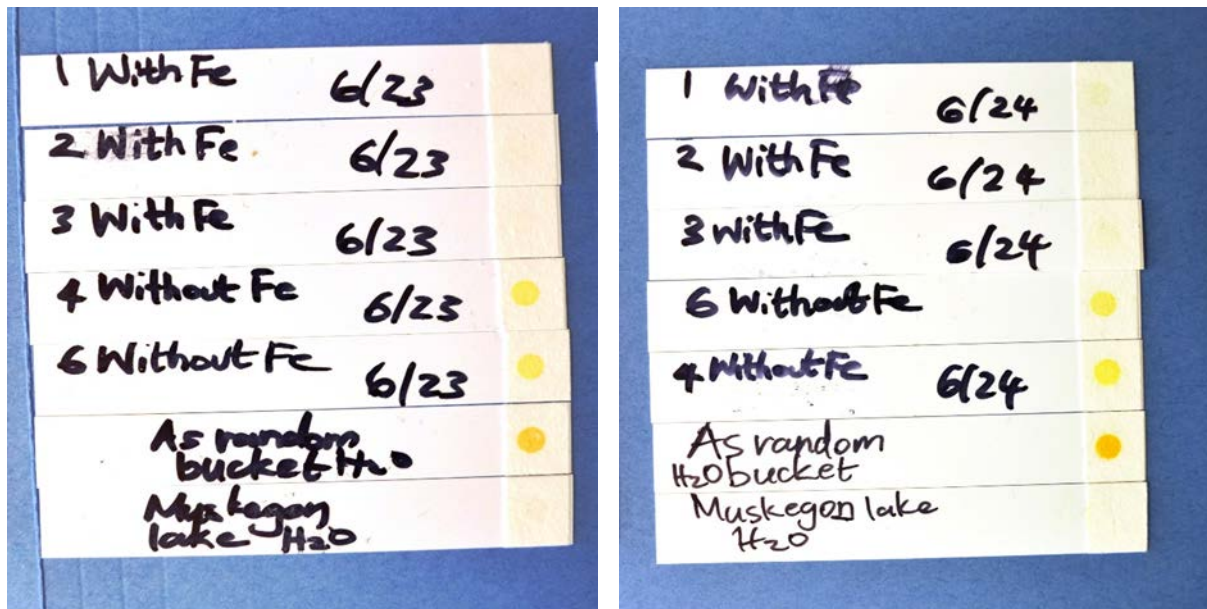 1 With Fe 6/23
2 With Fe 6/23
3 With Fe 6/23
4 Without Fe 6/23
6 Without Fe 6/23
As random
bucket H2O
Muskegon
lake H2O
1 With Fe 6/24
2 With Fe 6/24
3 With Fe 6/24
6 Without Fe
4 Without Fe 6/24
As random
H2O bucket
Muskegon lake
H2O